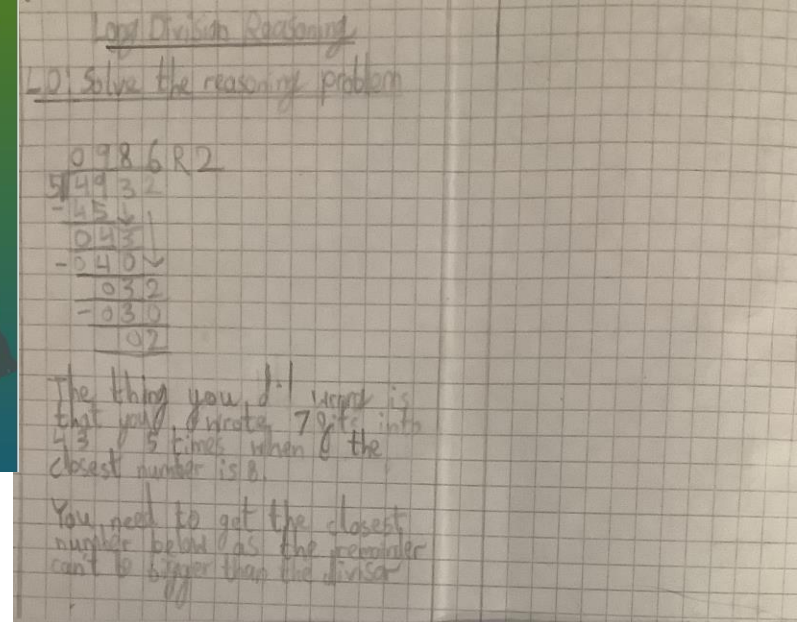 Long Division Reasoning
LO: Solve the reasoning problem
0986R2
5 4932
- 45
043
- 040
032
- 030
02
The thing you did wrong is
that you wrote 7 into
43 5 times when the
closest number is 8.
You need to get the closest
number below as the remainder
can't be bigger than the divisor